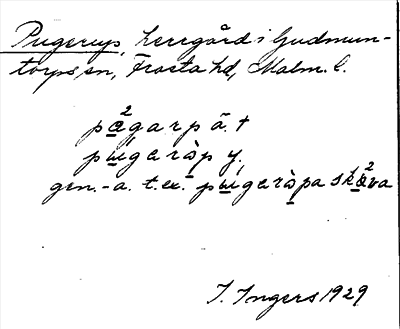 Pugerup, herrgård i Gudmun-
torps sn, Frosta hd, Malm. l.
pa²garpä. †
pu̲garàp y.
gen. -a. t.ex. pu̲garàpa ska²va
I. Ingers 1929